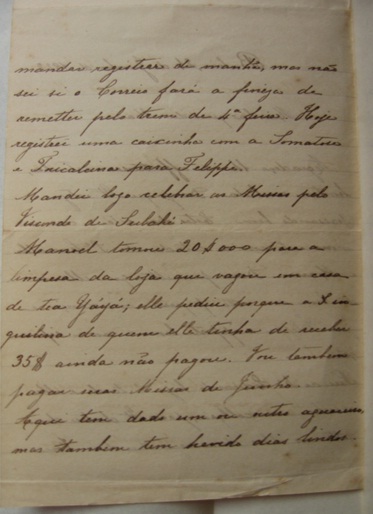 mandar registrar de manhã, mas não
sei si o Correio fará a fineza de
remetter pelo trem de 4ª feira. Hoje
registrei uma caixinha com a Somatose
e Tricalcina para Felippe.
Mandei logo celebrar as Missas pelo
Visconde de Subahé
Manoel tomou 20$000 para a
limpesa da loja que vagou em casa
de tia Yáyá; elle pediu porque a Inquilina
de quem elle tinha de receber
35$ ainda não pagou. Vou tambem
pagar essas Missas de Junho.
Aqui tem dado um ou outro aguaceiro,
mas tambem tem havido dias lindos.